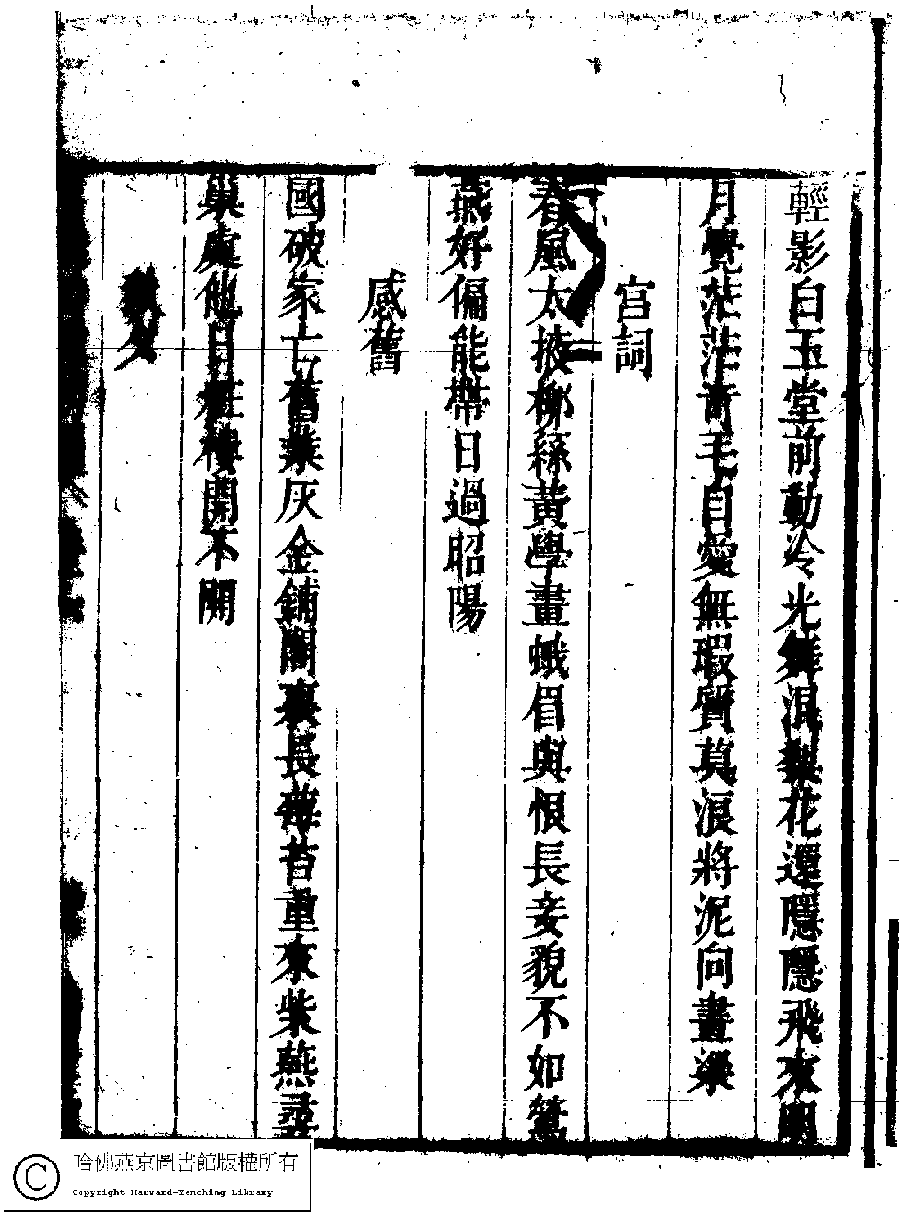 輕影白玉堂前動冷光舞混梨花還隱隱飛來明
月覺茫茫奇毛自愛無瑕質莫浪將泥向畫梁
宮詞
春風太掖柳絲黃學畫蛾眉與恨長妾貌不如鶯
燕好偏能帶日過昭陽
感舊
國破家亡舊業灰金鋪閣裏長莓苔重來柴燕尋
巢處他日紅樓開不開
哈佛燕京圖書館版權所有
Copyright Harvard-Yenching Library